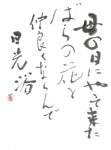 母の日にやって来た
ばらの花と
仲良くならんで
日光浴